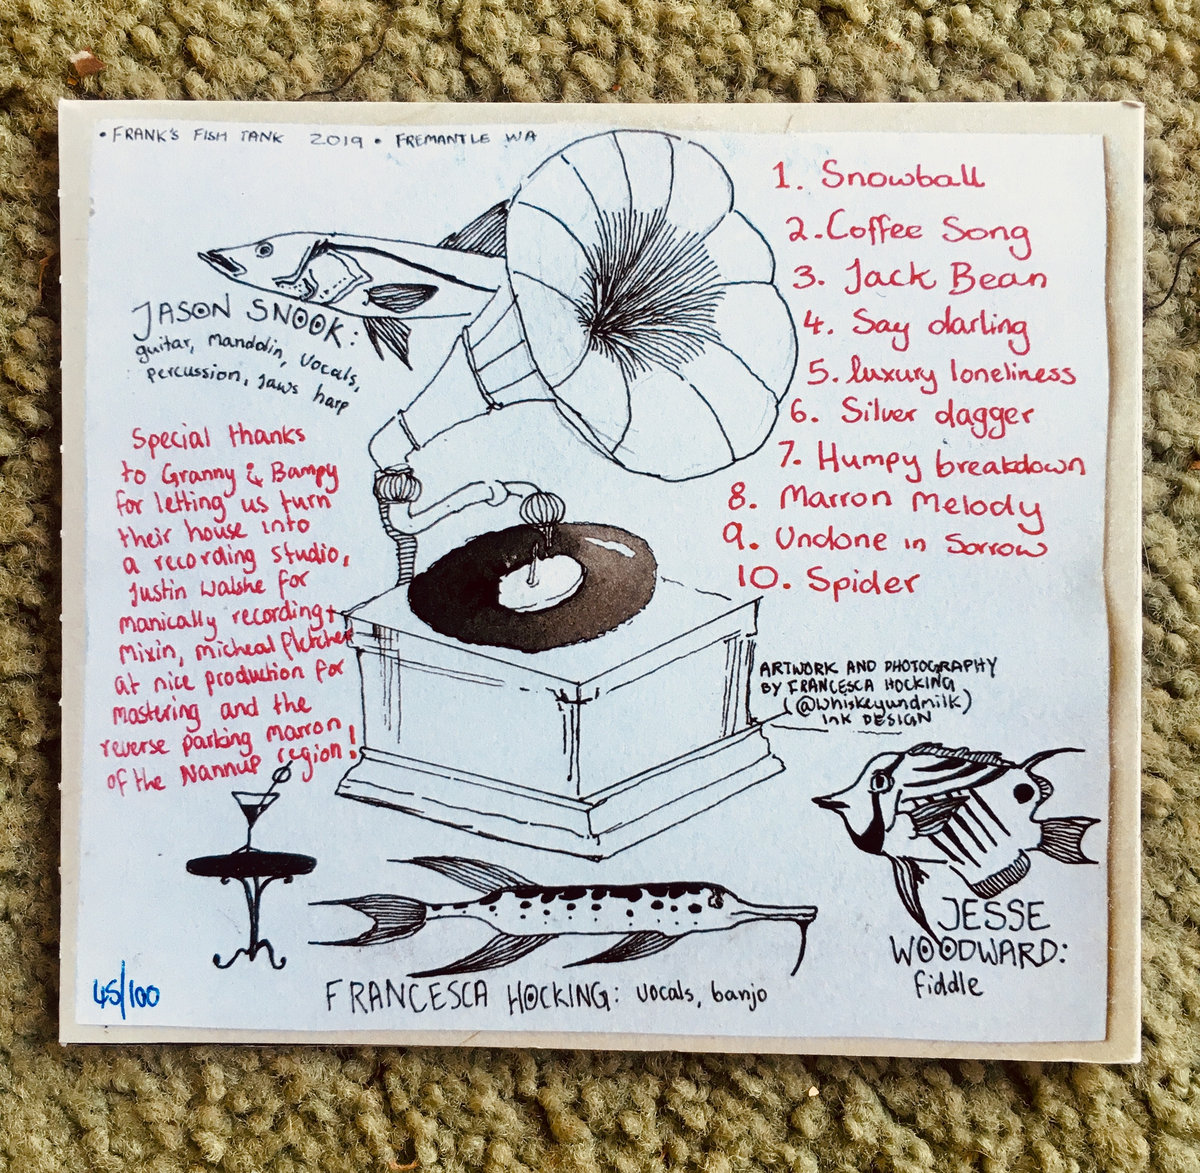 • FRANK'S FISH TANK 2019 • FREMANTLE WA
JASON SNOOK:
guitar, mandolin, vocals,
percussion, jaws harp
Special thanks
to Granny & Bampy
for letting us turn
their house into
a recording studio,
Justin Walshe for
manically recording +
mixin, micheal fletcher
at nice production for
mastering and the
reverse parking marron
of the Nannup region!
1. Snowball
2. Coffee Song
3. Jack Bean
4. Say darling
5. luxury loneliness
6. Silver dagger
7. Humpy breakdown
8. Marron Melody
9. Undone in Sorrow
10. Spider
ARTWORK AND PHOTOGRAPHY
BY FRANCESCA HOCKING
(@whiskeyundmilk)
INK DESIGN
JESSE
WOODWARD:
fiddle
FRANCESCA HOCKING: vocals, banjo
45/100